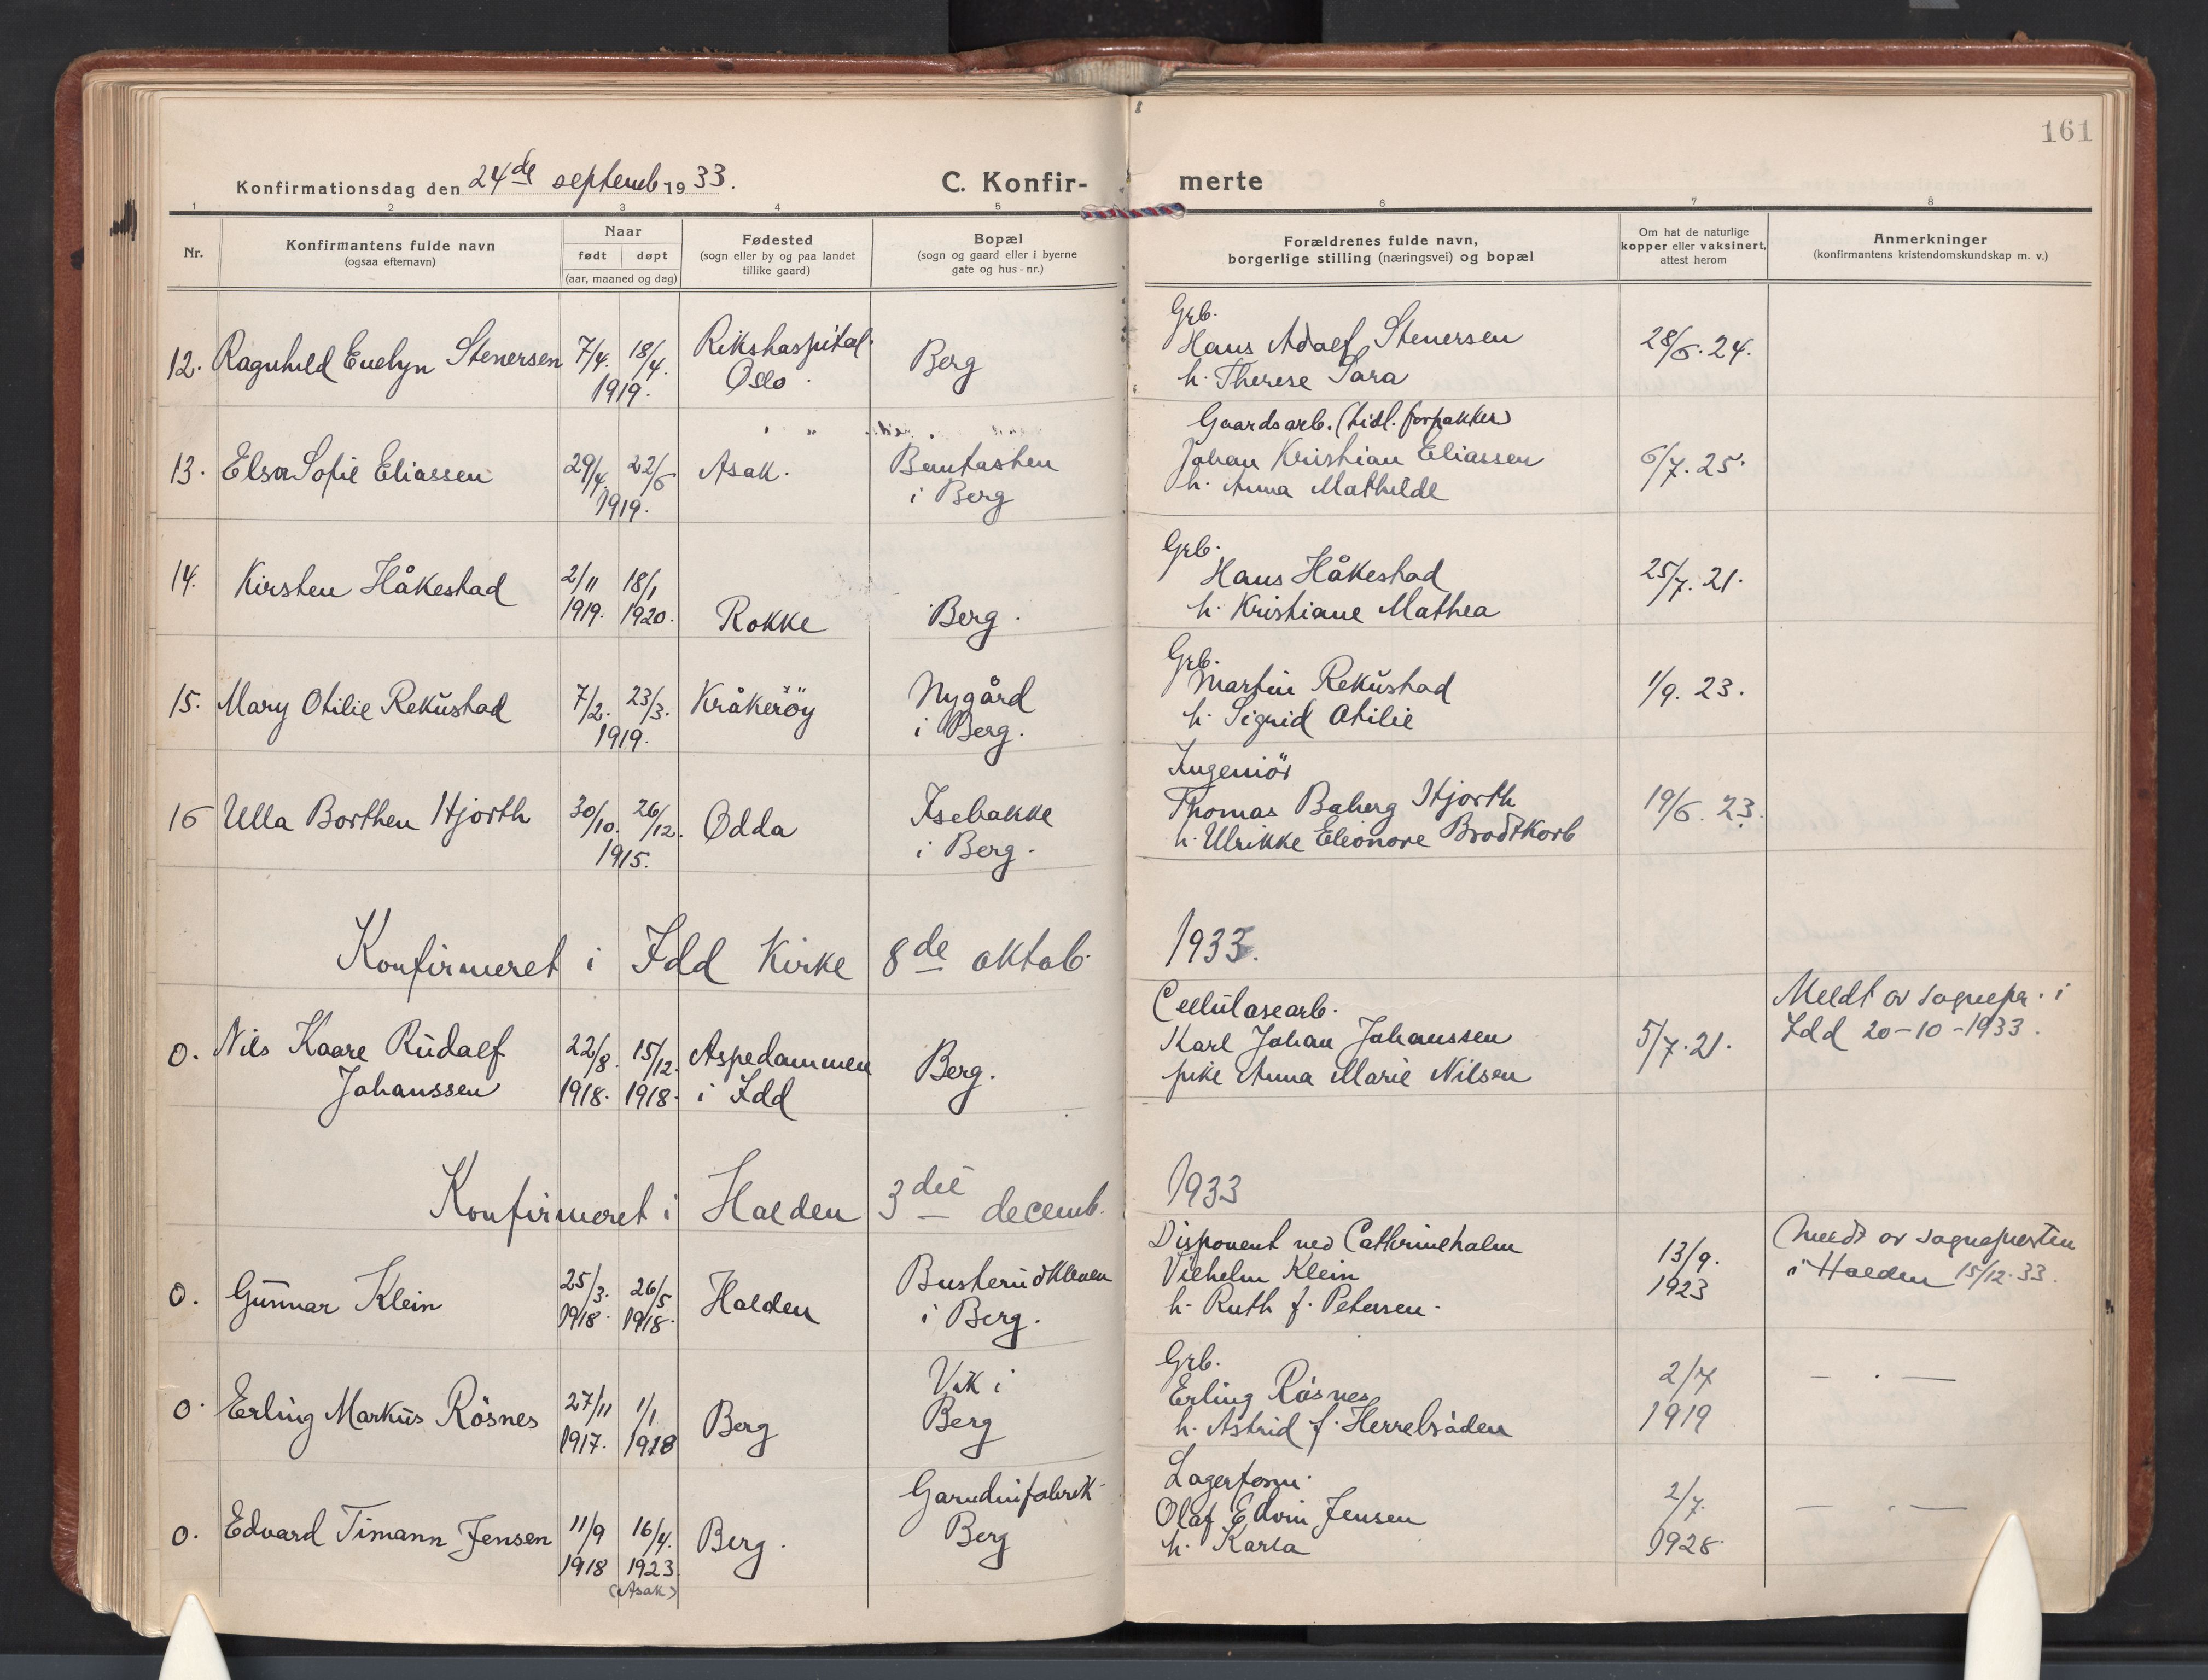 161
Konfirmationsdag den 24de septemb 1933.
C. Konfir-
merte
1 2 3 4 5 6 7 8
Nr.
Konfirmantens fulde navn
(ogsaa efternavn)
Naar
født døpt
(aar, maaned og dag)
Fødested
(sogn eller by og paa landet
tillike gaard)
Bopæl
(sogn og gaard eller i byerne
gate og hus-nr.)
Forældrenes fulde navn,
borgerlige stilling (næringsvei) og bopæl
Om hat de naturlige
kopper eller vaksinert,
attest herom
Anmerkninger
(konfirmantens kristendomskundskap m. v.)
Grb.
12. Ragnhild Evelyn Stenersen 7/4. 18/4. Rikshospital. Berg Hans Adolf Stenersen 28/6. 24.
1919. Oslo. h. Therese Sara
Gaardsarb. (tidl. forpakker)
13. Elsa Sofie Eliassen 29/4. 22/6 Asak. Bautasten Johan Kristian Eliassen 6/7. 25.
1919. i Berg h. Anna Mathilde
Grb.
14. Kirsten Håkestad 2/11 18/1 Hans Håkestad 25/7. 21.
1919. 1920. Rokke Berg. h. Kristiane Mathea
Grb.
15. Mary Otilie Rekustad 7/2. 23/3. Kråkeröy Nygård Martin Rekustad 1/9. 23.
1919. i Berg. h. Sigrid Otilie
Ingeniör
16 Ulla Borthen Hjorth 30/10. 26/12. Odda Isebakke Thomas Boberg Hjorth 19/6. 23.
1915. i Berg. h. Ulrikke Eleonore Brodtkorb
Konfirmeret i Idd Kirke 8de oktob. 1933.
Cellulosearb. Meldt av sognepr. i
0. Nils Kaare Rudolf 22/8. 15/12. Aspedammen Berg. Karl Johan Johanssen 5/7. 21. Idd 20-10-1933.
Johanssen 1918. 1918. i Idd pike Anna Marie Nilsen
Konfirmeret i Halden 3die decemb. 1933
Disponent ved Cathrineholm 13/9. Meldt av sognepresten
0. Gunnar Klein 25/3. 26/5 Halden Busterudkleven Vilhelm Klein 1923 i Halden 15/12. 33.
1918. 1918. i Berg. h. Ruth f. Petersen.
Grb.
0. Erling Markus Rösnes 27/11 1/1 Berg Vik i Erling Rösnes 2/7 — . —
1917. 1918 Berg h. Astrid f. Herrebråden 1919
Lagerform.
0. Edvard Timann Jensen 11/9 16/4. Berg. Gardinfabrik Olaf Edvin Jensen 2/7. — . —
1918 1923 Berg h. Karla 1928.
(Asak)